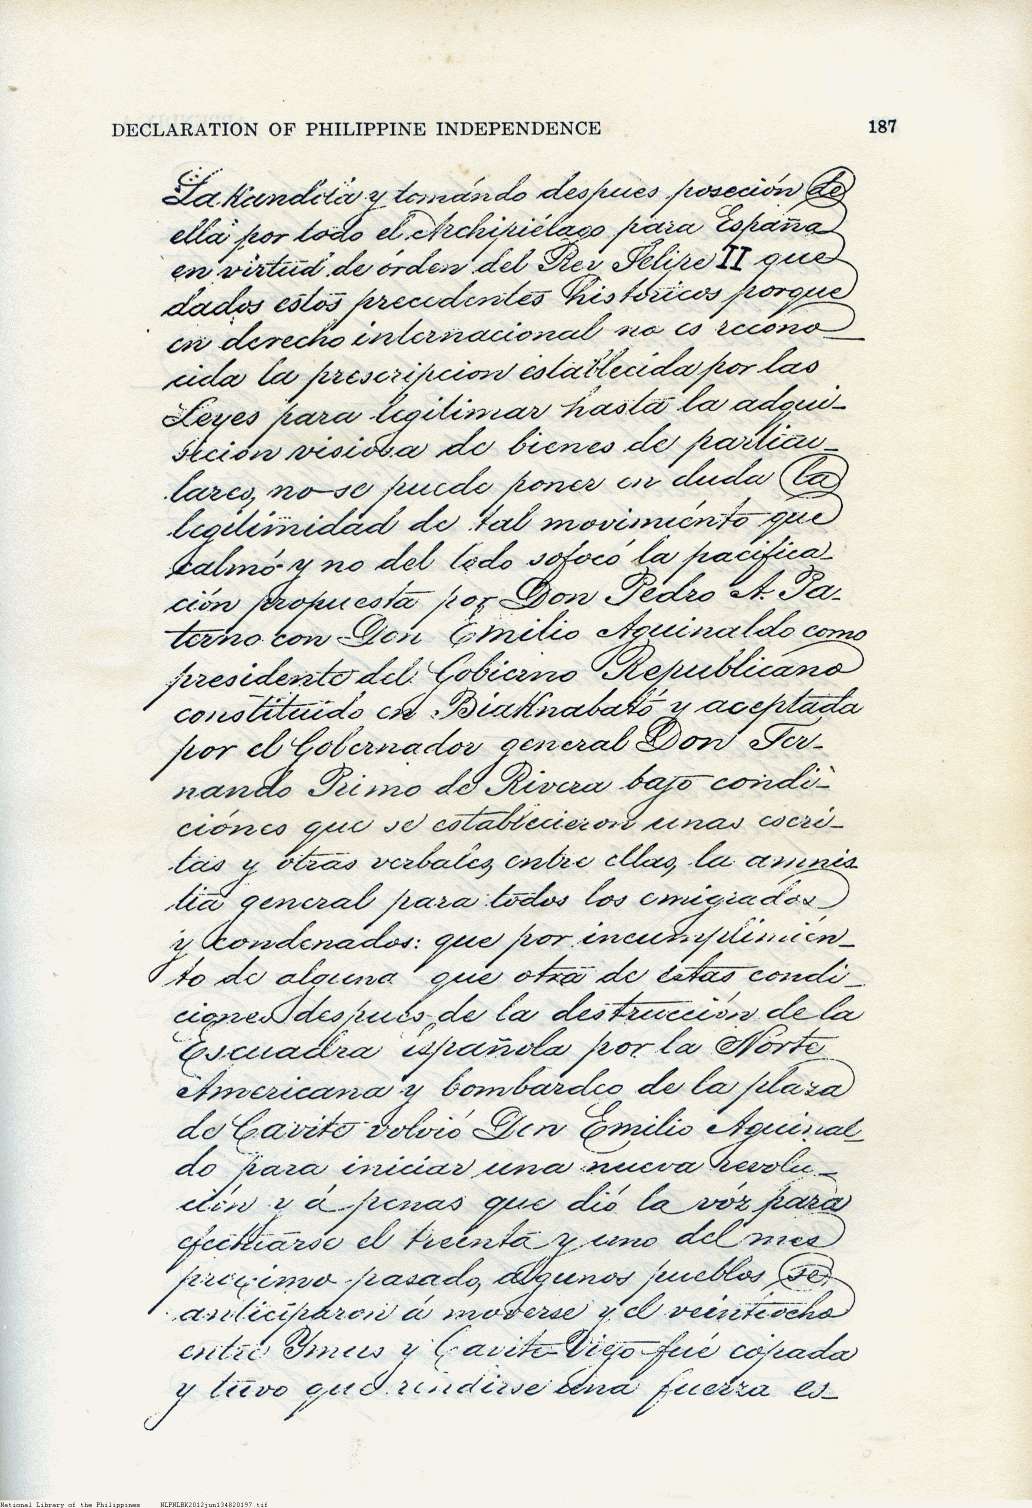 DECLARATION OF PHILIPPINE INDEPENDENCE 187
Lakandola y tomándo despues poseción de
ella por todo el Archipiélago para España
en virtud de órden del Rey Felipe II que
dados estos precedentes históricos porque
en derecho internacional no es recono-
cida la prescripcion establecida por las
Leyes para legitimar hasta la adqui-
sicion visiosa de bienes de particu-
lares, no se puede poner en duda la
legitimidad de tal movimiénto que
calmó y no del todo sofocó la pacifica-
ción propuesta por Don Pedro A. Pa-
terno con Don Emilio Aguinaldo como
presidente del Gobierno Republicano
constituido en Biaknabató y aceptada
por el Gobernador general Don Fer-
nando Primo de Rivera bajo condi-
ciónes que se establecieron unas escri-
tas y otras verbales, entre ellas, la amnis
tia general para todos los emigrados
y condenados: que por incumplimién-
to de alguna que otra de estas condi-
ciones despues de la destrucción de la
Escuadra española por la Norte
Americana y bombardeo de la plaza
de Cavite volvió Don Emilio Aguinal-
do para iniciar una nueva revolu-
ción y á penas que dió la vóz para
efectuarse el treenta y uno del mes
procimo pasado, algunos pueblos se
anticiparon á moverse y el veintiocho
entre Ymus y Cavite-Viejo fué copada
y tuvo que rindirse una fuerza es-
National Library of the Philippines NLPNLBK2012jun134820197.tif